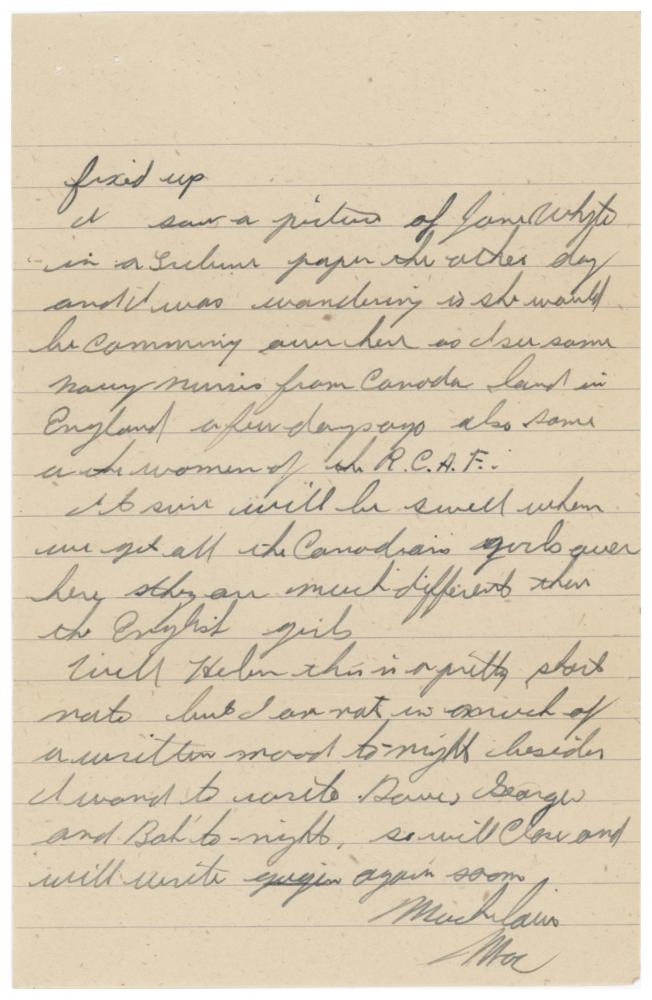 fixed up
I saw a picture of Jane Whyte
in a Tribune paper the other day
and I was wandering is she would
be comming over here as I see some
navy nurses from Canada land in
England a few days ago also some
a the women of the R.C.A.F.
It sure will be swell when
we get all the Canadian girls over
here they are much different then
the English girls
Well Helen this is a pretty short
note but I am not in much of
a written mood to-night besides
I want to write Dave, George
and Bob to-night, so will close and
will write again soon
Much love
Moe